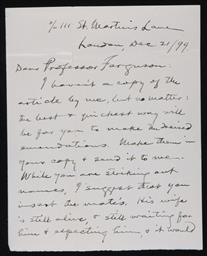 % 111 St. Martin's Lane
London, Dec 21/99.
Dear Professor Ferguson:
I haven't a copy of the
article by me, but no matter:
the best & quickest way will
be for you to make the desired
emendations. Make them in
your copy & send it to me.
While you are striking out
names, I suggest that you
insert the mate's. His wife
is still alive, & still waiting for
him & expecting him, & it would